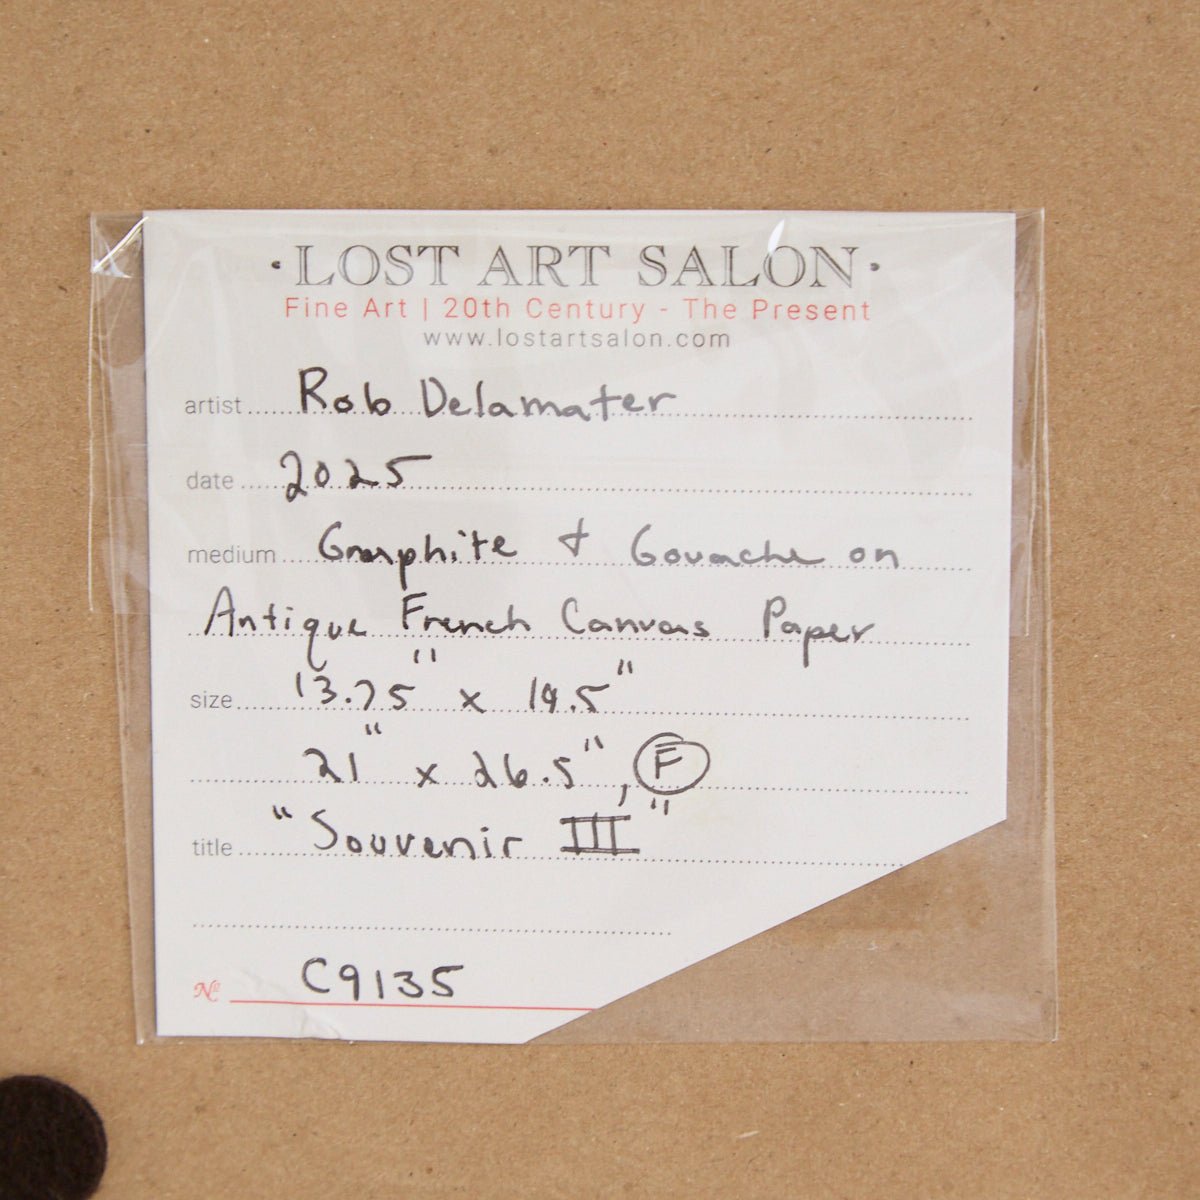 · LOST ART SALON ·
Fine Art | 20th Century - The Present
www.lostartsalon.com
artist Rob Delamater
date 2025
medium Graphite + Gouache on
Antique French Canvas Paper
size 13.75" x 19.5"
21" x 26.5", F
title "Souvenir III"
No C9135